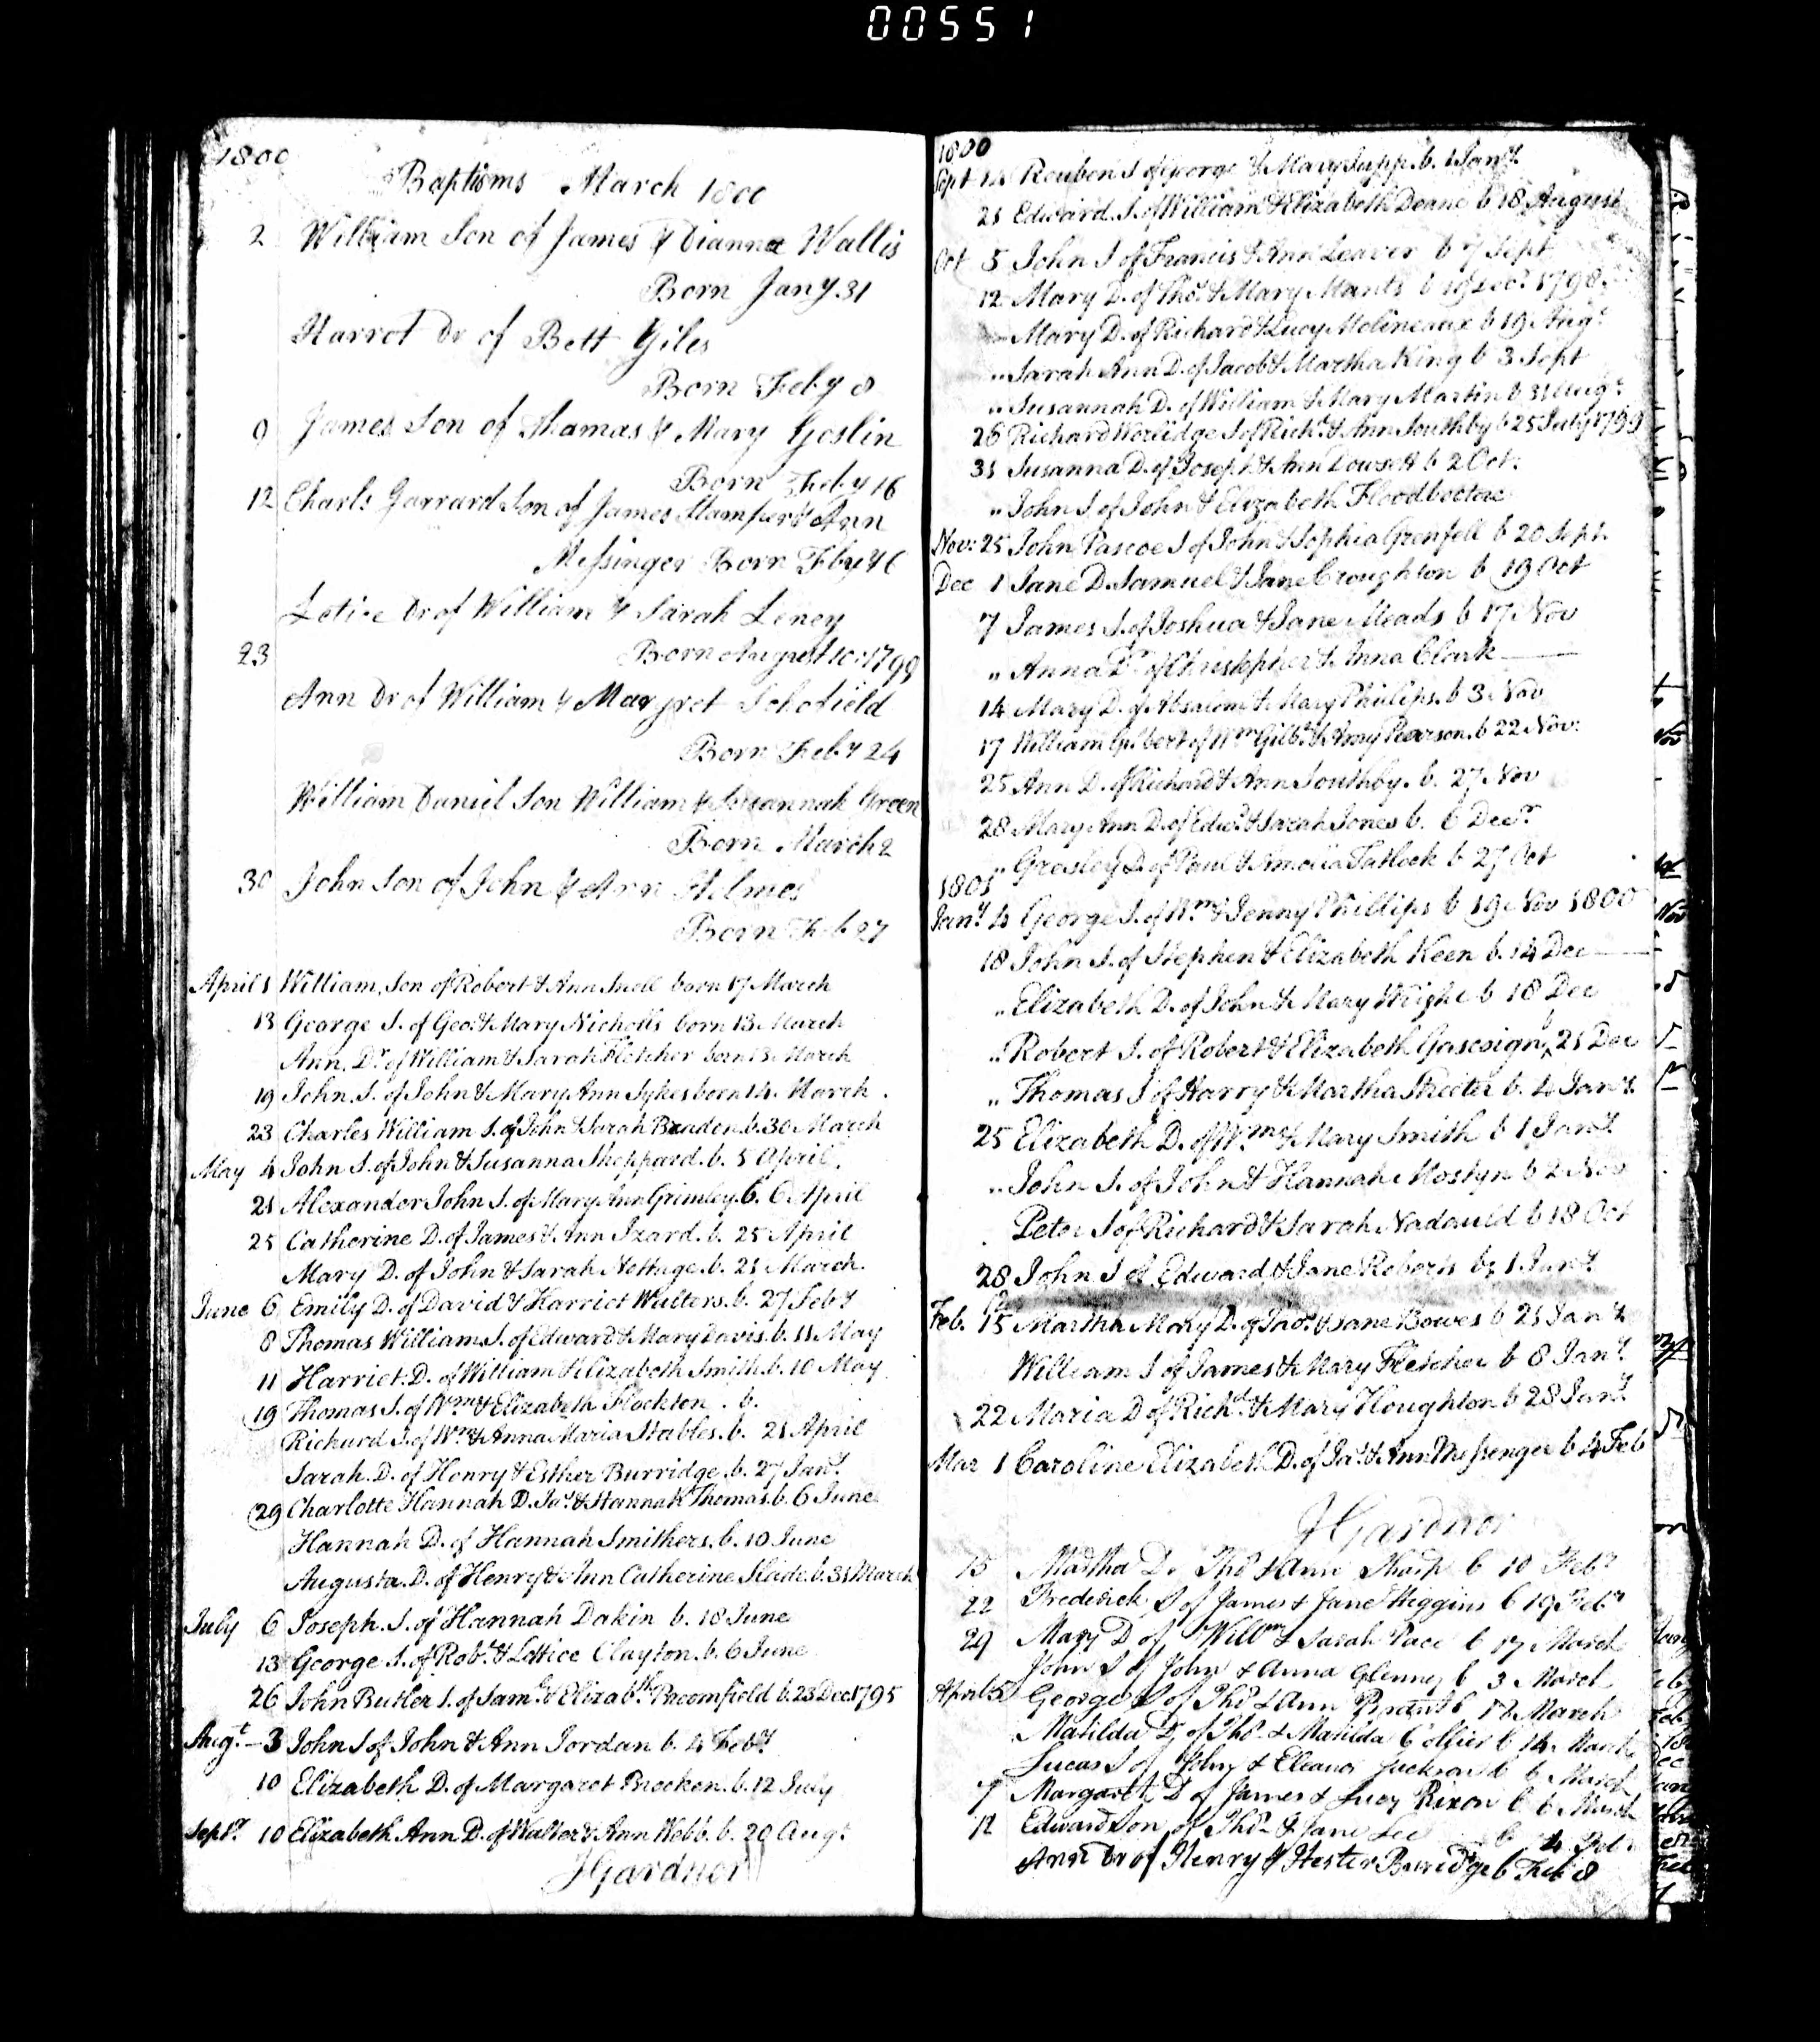 00551
1800
Baptisms March 1800
2 William Son of James & Dianna Wallis
Born Jany 31
Harrot Dr of Bett Giles
Born Feby 8
9 James Son of Thamas & Mary Goslin
Born Feby 16
12 Charls Garrard Son of James Stamper & Ann
Messinger Born Feby 16
Letice Dr of William & Sarah Leney
23 Born August 10: 1799
Ann Dr of William & Margret Schofield
Born Feby 24
William Daniel Son William & Susannah Green
Born March 2
30 John Son of John & Ann Holmes
Born Feb 27
April 1 William, Son of Robert & Ann Snell born 17 March
13 George S. of Geo: & Mary Nicholls born 13 March
Ann, Dr of William & Sarah Fletcher born 13 March
19 John. S. of John & Mary Ann Sykes born 14 March.
23 Charles William S. of John & Sarah Braden. b. 30 March
May 4 John S. of John & Susanna Sheppard. b. 5 April.
21 Alexander John S. of Mary Ann Grimley. b. 6 April
25 Catherine D. of James & Ann Izard. b. 25 April
Mary D. of John & Sarah Nettuge. b. 21 March.
June 6 Emily D. of David & Harriet Walters. b. 27 Feby
8 Thomas William S. of Edward & Mary Davis. b. 11 May
11 Harriet. D. of William & Elizabeth Smith. b. 10 May
19 Thomas S. of Wm & Elizabeth Flockton. b.
Richard S. of Wm & Anna Maria Stables. b. 21 April
Sarah. D. of Henry & Esther Burridge. b. 27 Jany.
29 Charlotte Hannah D. Jas. & Hannah Thomas. b. 6 June
Hannah D. of Hannah Smithers. b. 10 June
Augusta. D. of Henry & Ann Catherine Slade. b. 31 March
July 6 Joseph. S. of Hannah Dakin b. 18 June
13 George S. of Rob. & Lettice Clayton. b. 6 June
26 John Butler S. of Saml. & Elizabth Broomfield b. 23 Dec 1795
Augt. 3 John S of John & Ann Jordan b. 4 Feby.
10 Elizabeth D. of Margaret Brocken. b. 12 July
Septr. 10 Elizabeth Ann D. of Walter & Ann Webb. b. 20 Augt.
J Gardnor
1800
Sept 14 Reuben S of George & Mary Jupp. b. 1 Jany.
21 Edward. S. of William & Elizabeth Deane b 18 August
Oct 5 John S of Francis & Ann Leaver b 7 Sept
12 Mary D. of Thos. & Mary Mants b 19 Decr. 1798.
Mary D. of Richard & Lucy Molineaux b 19 Augt.
" Sarah Ann D. of Jacob & Martha King b 3 Sept
" Susannah D. of William & Mary Martin b 31 Augt.
26 Richard Worlidge S of Richd. & Ann Southby b 25 July 1799
31 Susanna D. of Joseph & Ann Dowsett b 2 Oct.
" John S. of John & Elizabeth
Nov: 25 John Pascoe S of John & Sophia Grenfell b 20 Sept.
Dec 1 Jane D. Samuel & Jane Croughton b 19 Oct
7 James S. of Joshua & Jane Meads b 17 Nov
" Anna Dr of Christopher & Anna Clark
14 Mary D. of Absalom & Mary Phillips. b 3 Nov
17 William Gilbert of Wm Gilbt. & Amy Pearson. b 22 Nov:
25 Ann D. of Richard & Ann Southby. b. 27 Nov
28 Mary Ann D. of Edwd. & Sarah Jones b. 6 Decr.
" Gresley D. of Paul & Amelia Tatlock b 27 Oct
1801
Jany. 4 George S. of Wm & Jenny Phillips b 19 Nov 1800
18 John S. of Stephen & Elizabeth Keen b. 14 Dec
" Elizabeth D. of John & Mary Wright b 18 Dec
" Robert S. of Robert & Elizabeth Gascoign b 21 Dec
" Thomas S of Harry & Martha Skeeter b. 4 Jany.
25 Elizabeth D. of Wm & Mary Smith b 1 Jany.
" John S. of John & Hannah Mostyn b 2 Nov
Peter S of Richard & Sarah Nadauld b 18 Oct
28 John S of Edward & Jane Roberts b 1 Jany.
Feb. 15 Martha Mary D. of Jno. & Jane Bowes b 21 Jany.
William S of James & Mary Fletcher b 8 Jany.
22 Maria D of Richd. & Mary Houghton b 28 Jany.
Mar 1 Caroline Elizabeth D. of Jas. & Ann Messenger b 4 Feb
J Gardnor
15 Martha D. Thos & Ann Sharp b 10 Feby
22 Frederick S of James & Jane Higgins b 19 Feby
29 Mary D of Willm & Sarah Pace b 17 March
John S of John & Anna Glenney b 3 March
April 5 George S of Thos & Ann b 12 March
Matilda D of Thos. & Matilda Collier b 14 March
Lucas S of John & Eleanor Jackson b 6 March
7 Margaret D of James & Lucy Rixon b 6 March
12 Edward Son of Thos & Jane Lee b 4 Feb.
Ann Dr of Henry & Hester Buridge b Feb 8